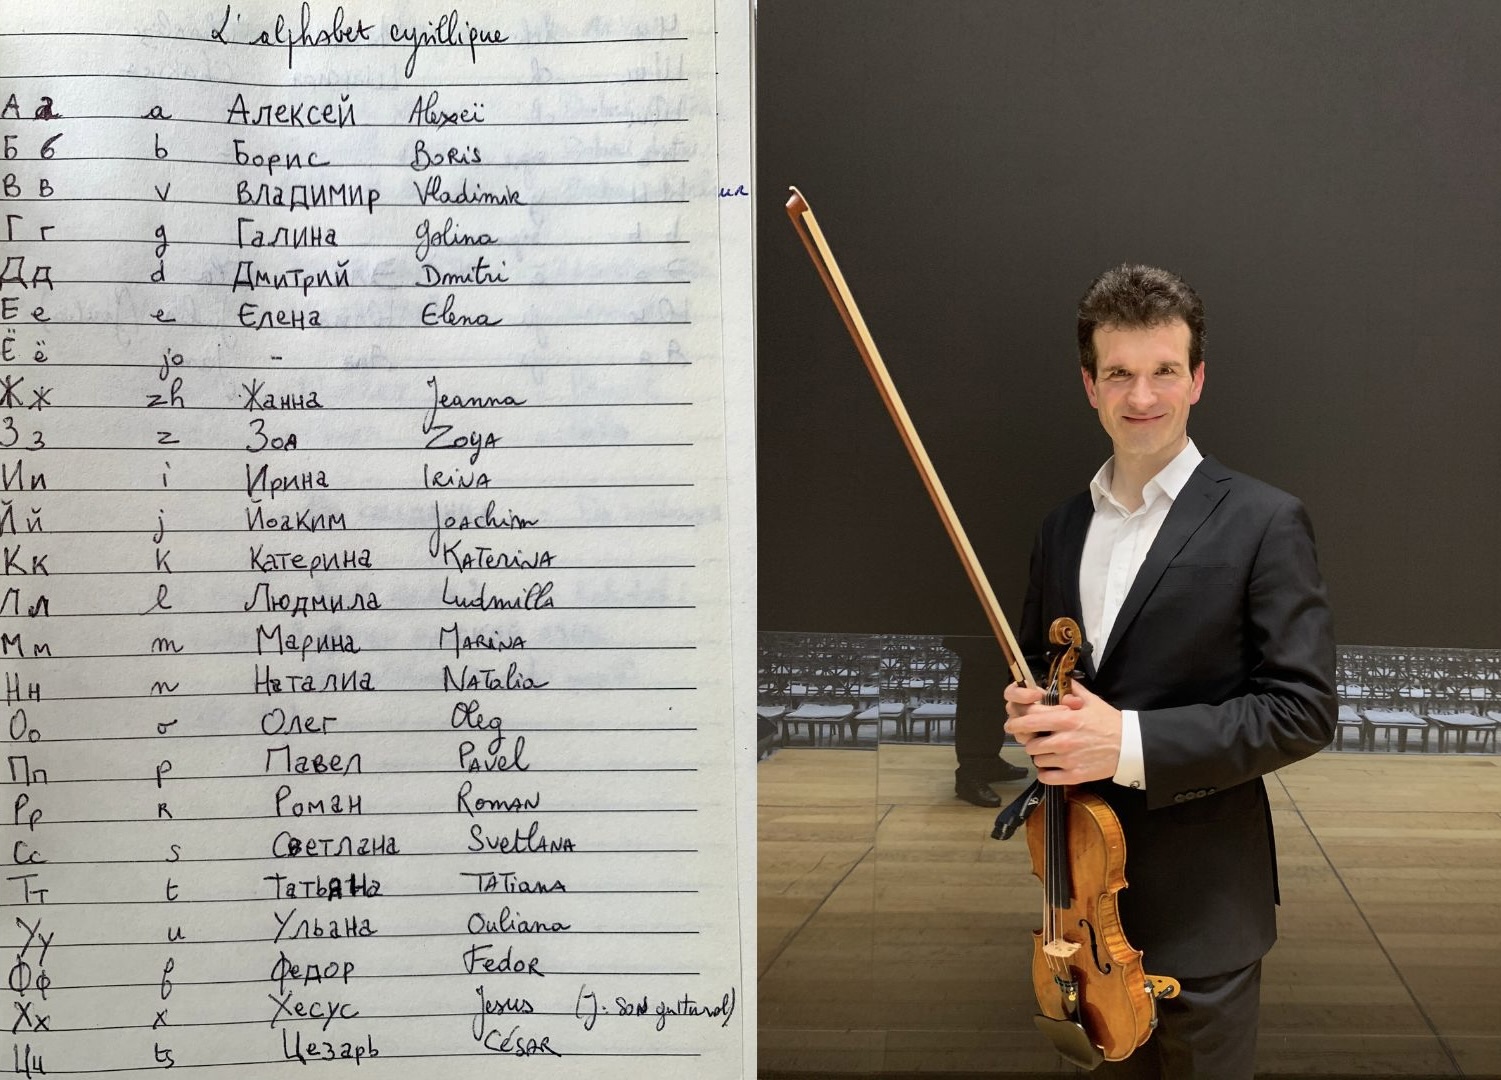 L'alphabet cyrillique
А а a Алексей Alexeï
Б б b Борис Boris
В в v Владимир Vladimir
Г г g Галина Galina
Д д d Дмитрий Dmitri
Е е e Елена Elena
Ё ё jo -
Ж ж zh Жанна Jeanna
З з z Зоа Zoya
И и i Ирина Irina
Й й j Йоаким Joachim
К к k Катерина Katerina
Л л l Людмила Ludmilla
М м m Марина Marina
Н н n Наталиа Natalia
О о o Олег Oleg
П п p Павел Pavel
Р р r Роман Roman
С с s Светлана Svetlana
Т т t Татьяна Tatiana
У у u Ульана Ouliana
Ф ф f Федор Fedor
Х х x Хесус Jesus (J. son guttural)
Ц ц ts Цезарь César